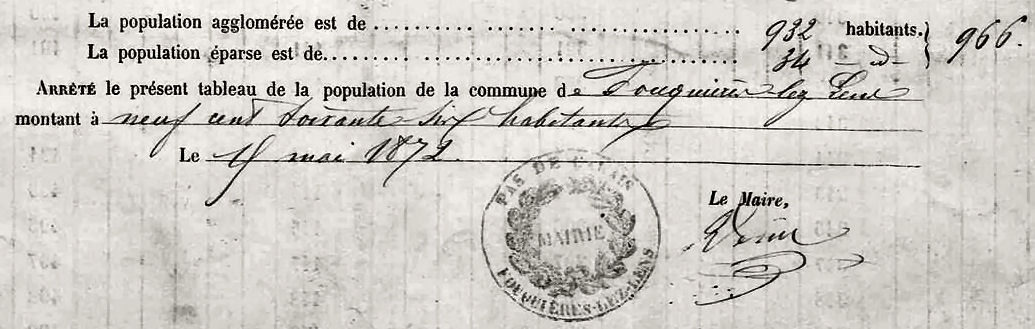 La population agglomérée est de ........ 932 habitants.
La population éparse est de........ 34 — d —
966.
ARRÊTÉ le présent tableau de la population de la commune de Fouquières lez Lens
montant à neuf cent soixante six habitants
Le mai 1872.
PAS DE CALAIS
MAIRIE
FOUQUIÈRES-LEZ-LENS
Le Maire,